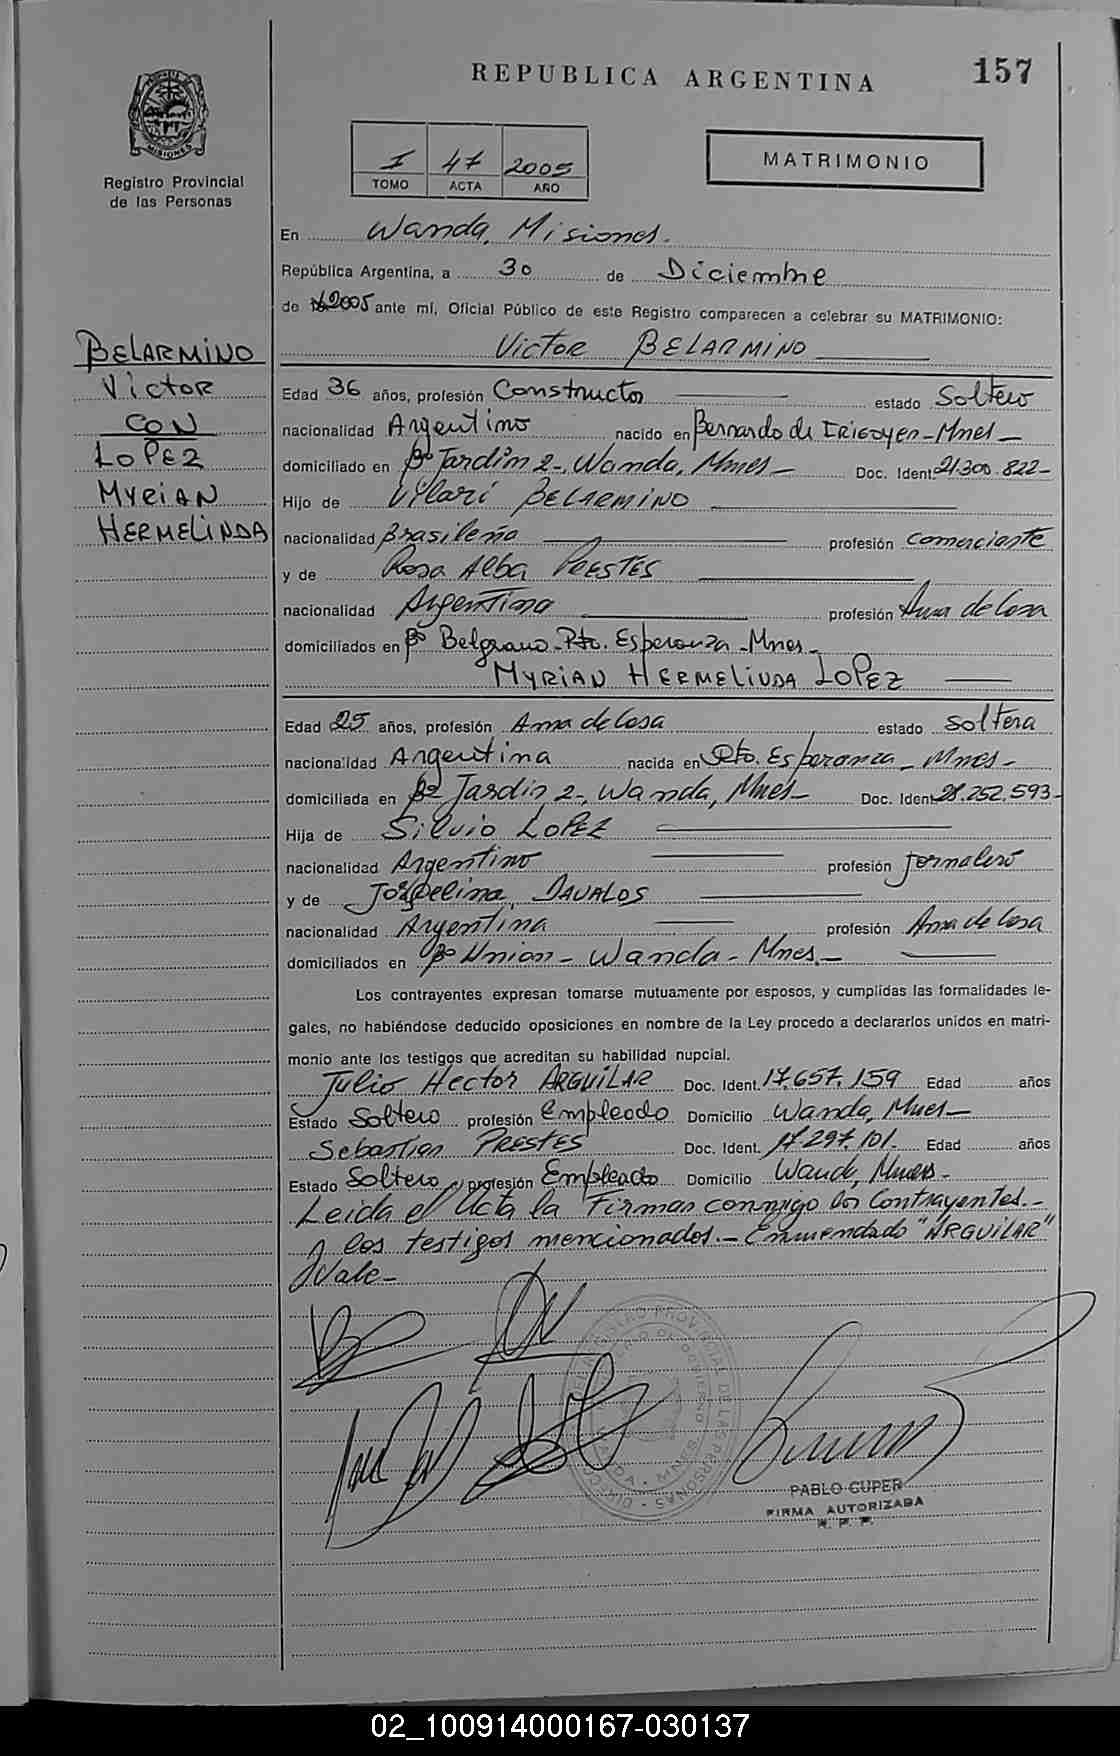 REPUBLICA ARGENTINA
157
MISIONES
Registro Provincial
de las Personas
I 47 2005
TOMO ACTA AÑO
MATRIMONIO
En Wanda, Misiones.
República Argentina, a 30 de Diciembre
de 2005 ante mí, Oficial Público de este Registro comparecen a celebrar su MATRIMONIO:
BELARMINO
Victor
CON
LOPEZ
MYRIAN
HERMELINDA
Victor BELARMINO
Edad 36 años, profesión Constructor estado Soltero
nacionalidad Argentino nacido en Bernardo de IRIGOYEN-Mnes-
domiciliado en Bº Jardin 2-, Wanda, Mnes- Doc. Ident. 21.300.822-
Hijo de Vilari BELARMINO
nacionalidad Brasileña profesión comerciante
y de Rosa Alba PRESTES
nacionalidad Argentina profesión Ama de Casa
domiciliados en Bº Belgrano-Pto. Esperanza-Mnes-
MYRIAN HERMELINDA LOPEZ
Edad 25 años, profesión Ama de Casa estado soltera
nacionalidad Argentina nacida en Pto. Esperanza-Mnes-
domiciliada en Bº Jardin 2-, Wanda, Mnes- Doc. Ident. 28.252.593-
Hija de Silvio LOPEZ
nacionalidad Argentino profesión Jornalero
y de DAVALOS
nacionalidad Argentina profesión Ama de Casa
domiciliados en Bº Union-Wanda-Mnes.-
Los contrayentes expresan tomarse mutuamente por esposos, y cumplidas las formalidades le-
gales, no habiéndose deducido oposiciones en nombre de la Ley procedo a declararlos unidos en matri-
monio ante los testigos que acreditan su habilidad nupcial.
Julio Hector ARGUILAR Doc. Ident. 17.657.159 Edad años
Estado Soltero profesión Empleado Domicilio Wanda, Mnes-
Sebastian PRESTES Doc. Ident. 17.297.101. Edad años
Estado Soltero profesión Empleado Domicilio Wanda, Mnes-
Leida el Acta la Firman conmigo los Contrayentes-
y los testigos mencionados.- Enmendado "ARGUILAR"
Vale-
PABLO CUPER
FIRMA AUTORIZADA
R. P. P.
02_100914000167-030137